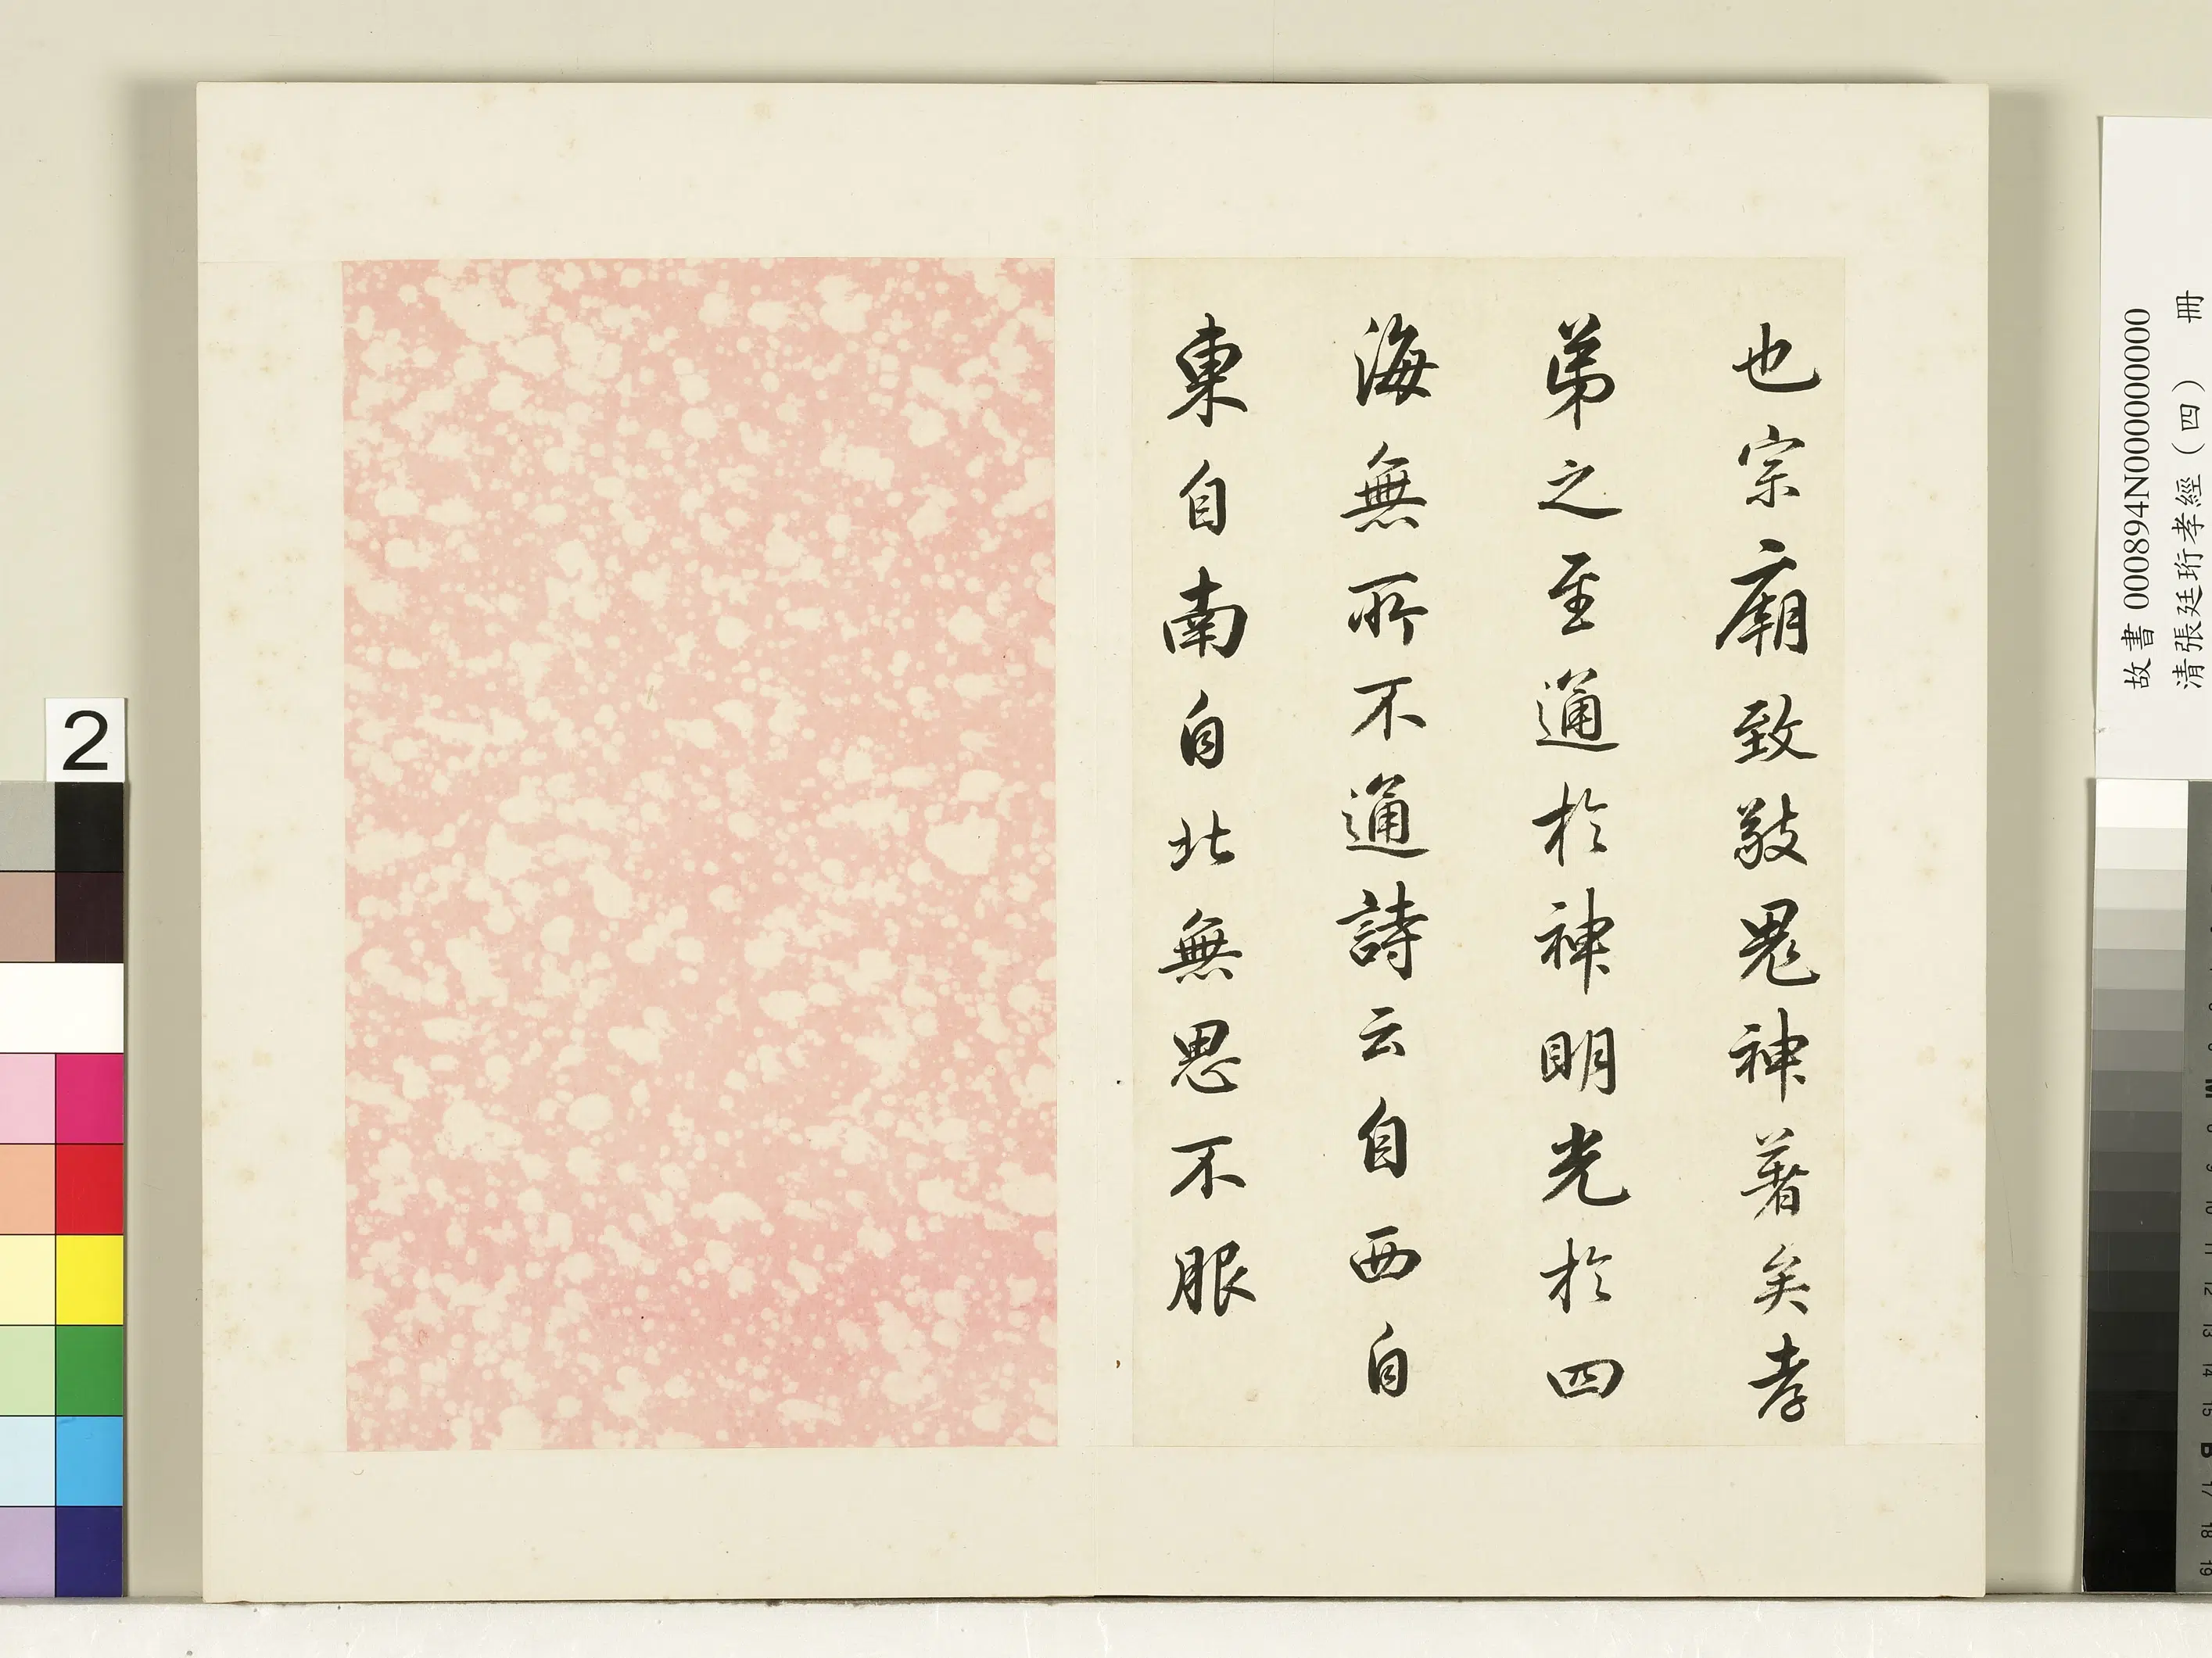 也宗廟致敬鬼神著矣孝
弟之至通於神明光於四
海無所不通詩云自西自
東自南自北無思不服
故書 000894N000000000
清張廷珩孝經（四） 冊
2
M
8
9
10
11
12
13
14
15
B
17
18
19